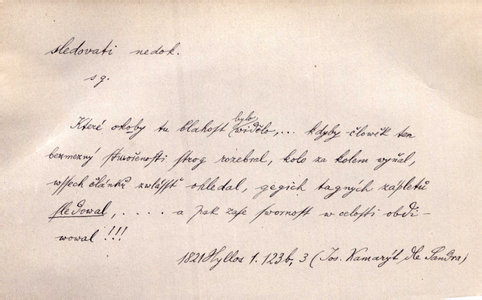 sledovati nedok.
sg.
Které okoby tu blahost bylo widělo,... kdyby člowěk ten
bezmezný stwořenosti strog rozebral, kolo za kolem wyňal,
wssech článků zwlásst ohledal, gegich tagných zápletů
sledowal, ..... a pak zase swornost w celosti obdi-
wowal!!!
1821 Hyllos 1. 123b, 3 (Jos. Kamarýt dle Sandra)